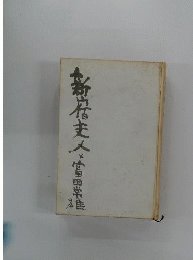 新宿夫人 富田常雄